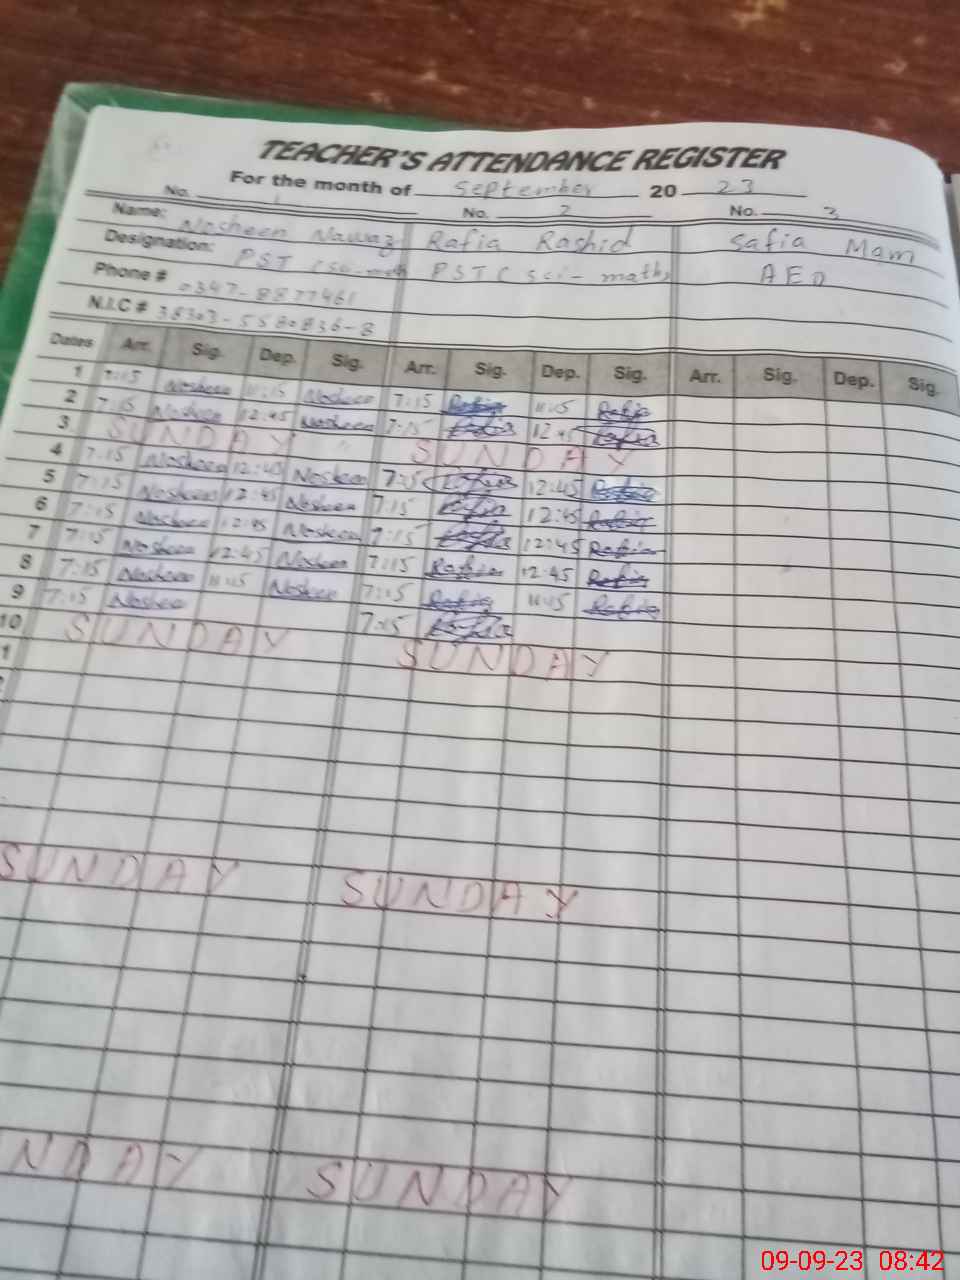 TEACHER'S ATTENDANCE REGISTER
For the month of September 2023
No. 1 No. 2 No. 3
Name: Nosheen Nawaz Rafia Rashid Safia Mam
Designation: PST (sci-math PST (sci-maths AEO
Phone # 0347-8877461
N.I.C # 38303-5580836-8
Dates Arr. Sig. Dep. Sig. Arr. Sig. Dep. Sig. Arr. Sig. Dep. Sig.
1 7:15 Nosheen 11:15 Nosheen 7:15 Rafia 11:15 Rafia
2 7:15 Nosheen 12:45 Nosheen 7:15 Rafia 12:45 Rafia
3 SUNDAY SUNDAY
4 7:15 Nosheen 12:45 Nosheen 7:15 Rafia 12:45 Rafia
5 7:15 Nosheen 12:45 Nosheen 7:15 Rafia 12:45 Rafia
6 7:15 Nosheen 12:45 Nosheen 7:15 Rafia 12:45 Rafia
7 7:15 Nosheen 12:45 Nosheen 7:15 Rafia 12:45 Rafia
8 7:15 Nosheen 11:15 Nosheen 7:15 Rafia 11:15 Rafia
9 7:15 Nosheen 7:15 Rafia
10 SUNDAY SUNDAY
SUNDAY SUNDAY
NDAY SUNDAY
09-09-23 08:42